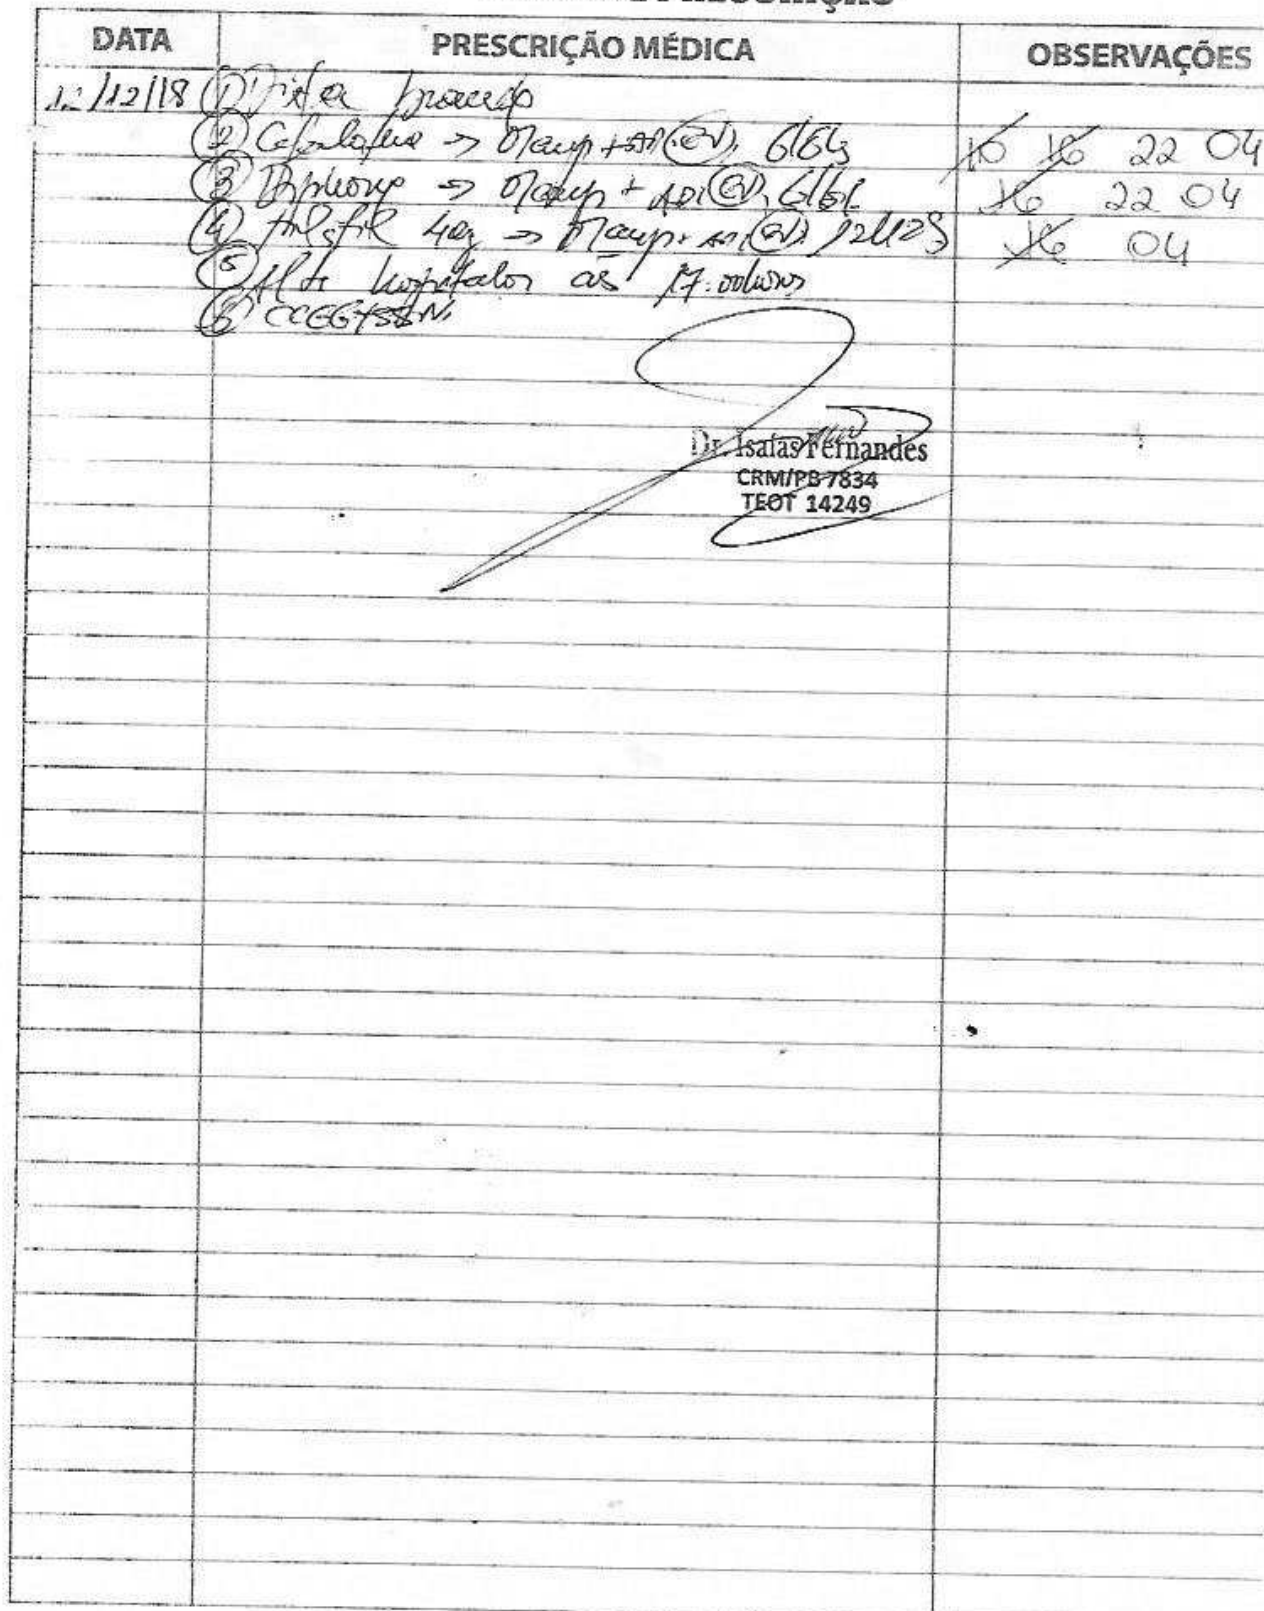 DATA PRESCRIÇÃO MÉDICA OBSERVAÇÕES
12/12/18 ① Dieta branda
② Cefalotina → 01amp + AD (EV), 6/6hs 10 16 22 04
③ Dipirona → 01amp + AD (EV), 6/6h 16 22 04
④ 4mg → 01amp + AD (EV) 12/12hs 16 04
⑤ Alta hospitalar às 17:00horas
⑥ CCGG + SSVV
Dr. Isaías Fernandes
CRM/PB 7834
TEOT 14249